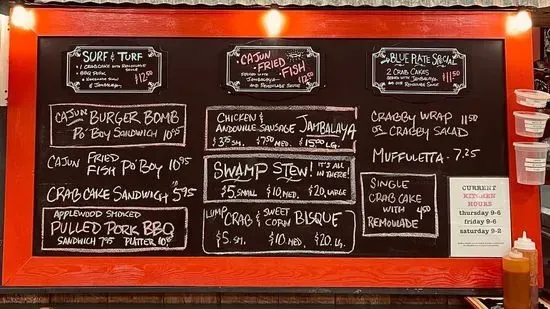 SURF & TURF
1 CRABCAKE WITH REMOULADE
SAUCE
BBQ PORK
REMOULADE SAUCE
& JAMBALAYA
$12.50
CAJUN
FRIED
FISH
SERVED WITH
JAMBALAYA
AND REMOULADE SAUCE
$12.50
BLUE PLATE SPECIAL
2 CRAB CAKES
SERVED WITH JAMBALAYA
AND OUR REMOULADE SAUCE
$11.50
CAJUN BURGER BOMB
PO'BOY SANDWICH 10.95
CAJUN FRIED
FISH PO'BOY 10.95
CRAB CAKE SANDWICH $5.95
APPLEWOOD SMOKED
PULLED PORK BBQ
SANDWICH 7.95 PLATTER 10.95
CHICKEN &
ANDOUILLE SAUSAGE JAMBALAYA
$3.75 SM. $7.50 MED. $15.00 LG.
SWAMP STEW! IT'S ALL
IN THERE!
$5. SMALL $10. MED. $20. LARGE
LUMP CRAB & SWEET
CORN BISQUE
$5. SM. $10. MED. $20. LG.
CRABBY WRAP 11.50
OR CRABBY SALAD
MUFFULETTA - 7.25
SINGLE
CRAB CAKE
WITH 4.50
REMOULADE
CURRENT
KITCHEN
HOURS
thursday 9-6
friday 9-6
saturday 9-2